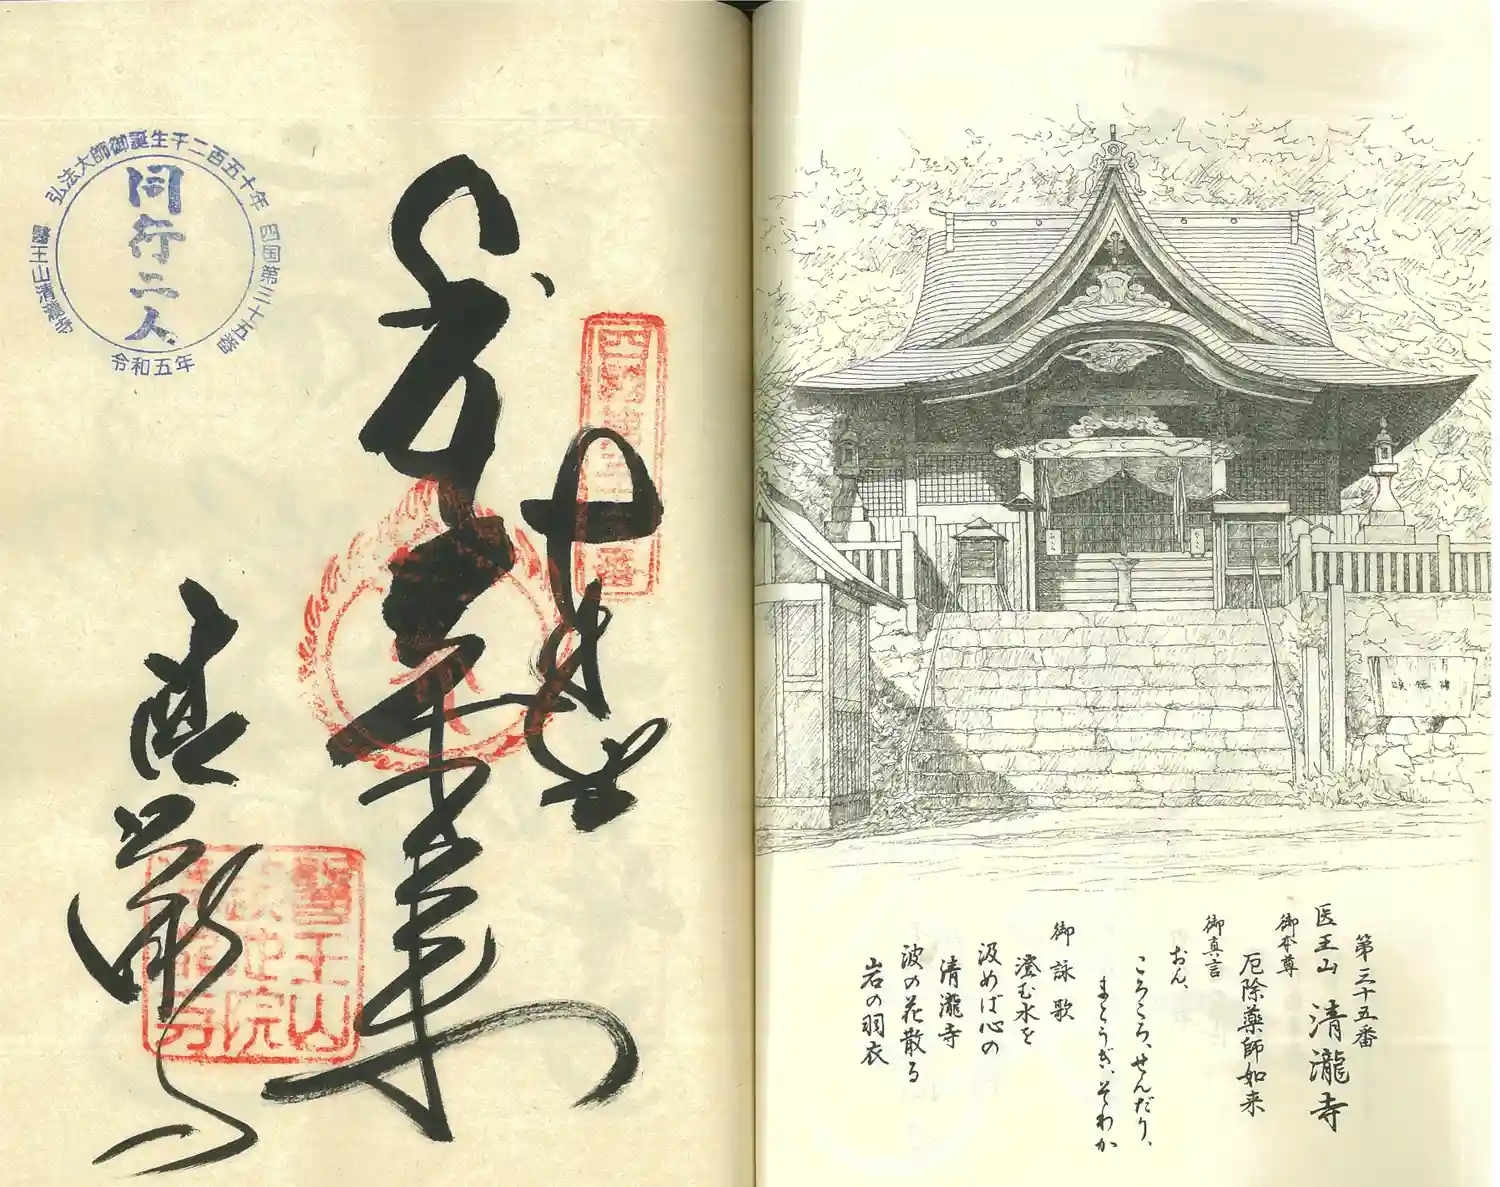 弘法大師御誕生千二百五十年
四国第三十五番
醫王山清瀧寺
同行二人
令和五年
奉納
醫王山
院
寺
第三十五番
医王山 清瀧寺
御本尊
厄除薬師如来
御真言
おん、
ころころ、せんだり、
まとうぎ、そわか
御詠歌
澄む水を
汲めば心の
清瀧寺
波の花散る
岩の羽衣